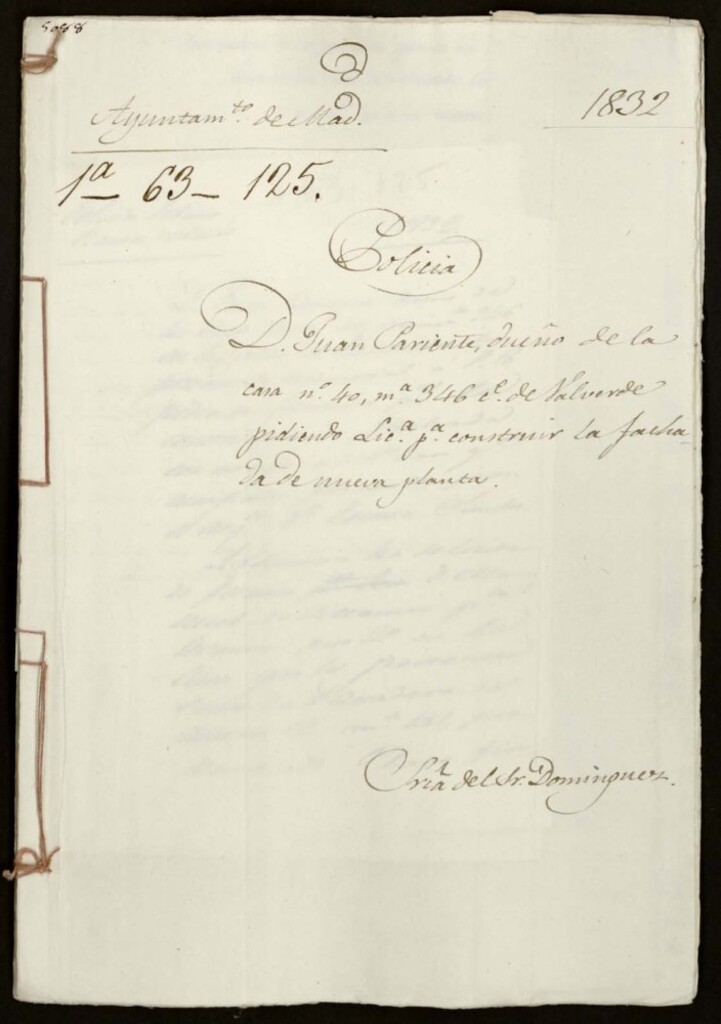 Ayuntam.to de Mad.
1832
1a 63 - 125.
Policia
D. Juan Pariente, dueño de la
casa n.o 40, m.a 346 c.e de Valverde
pidiendo Lic.a p.a construir la facha-
da de nueva planta.
Sria del Sr. Dominguez.